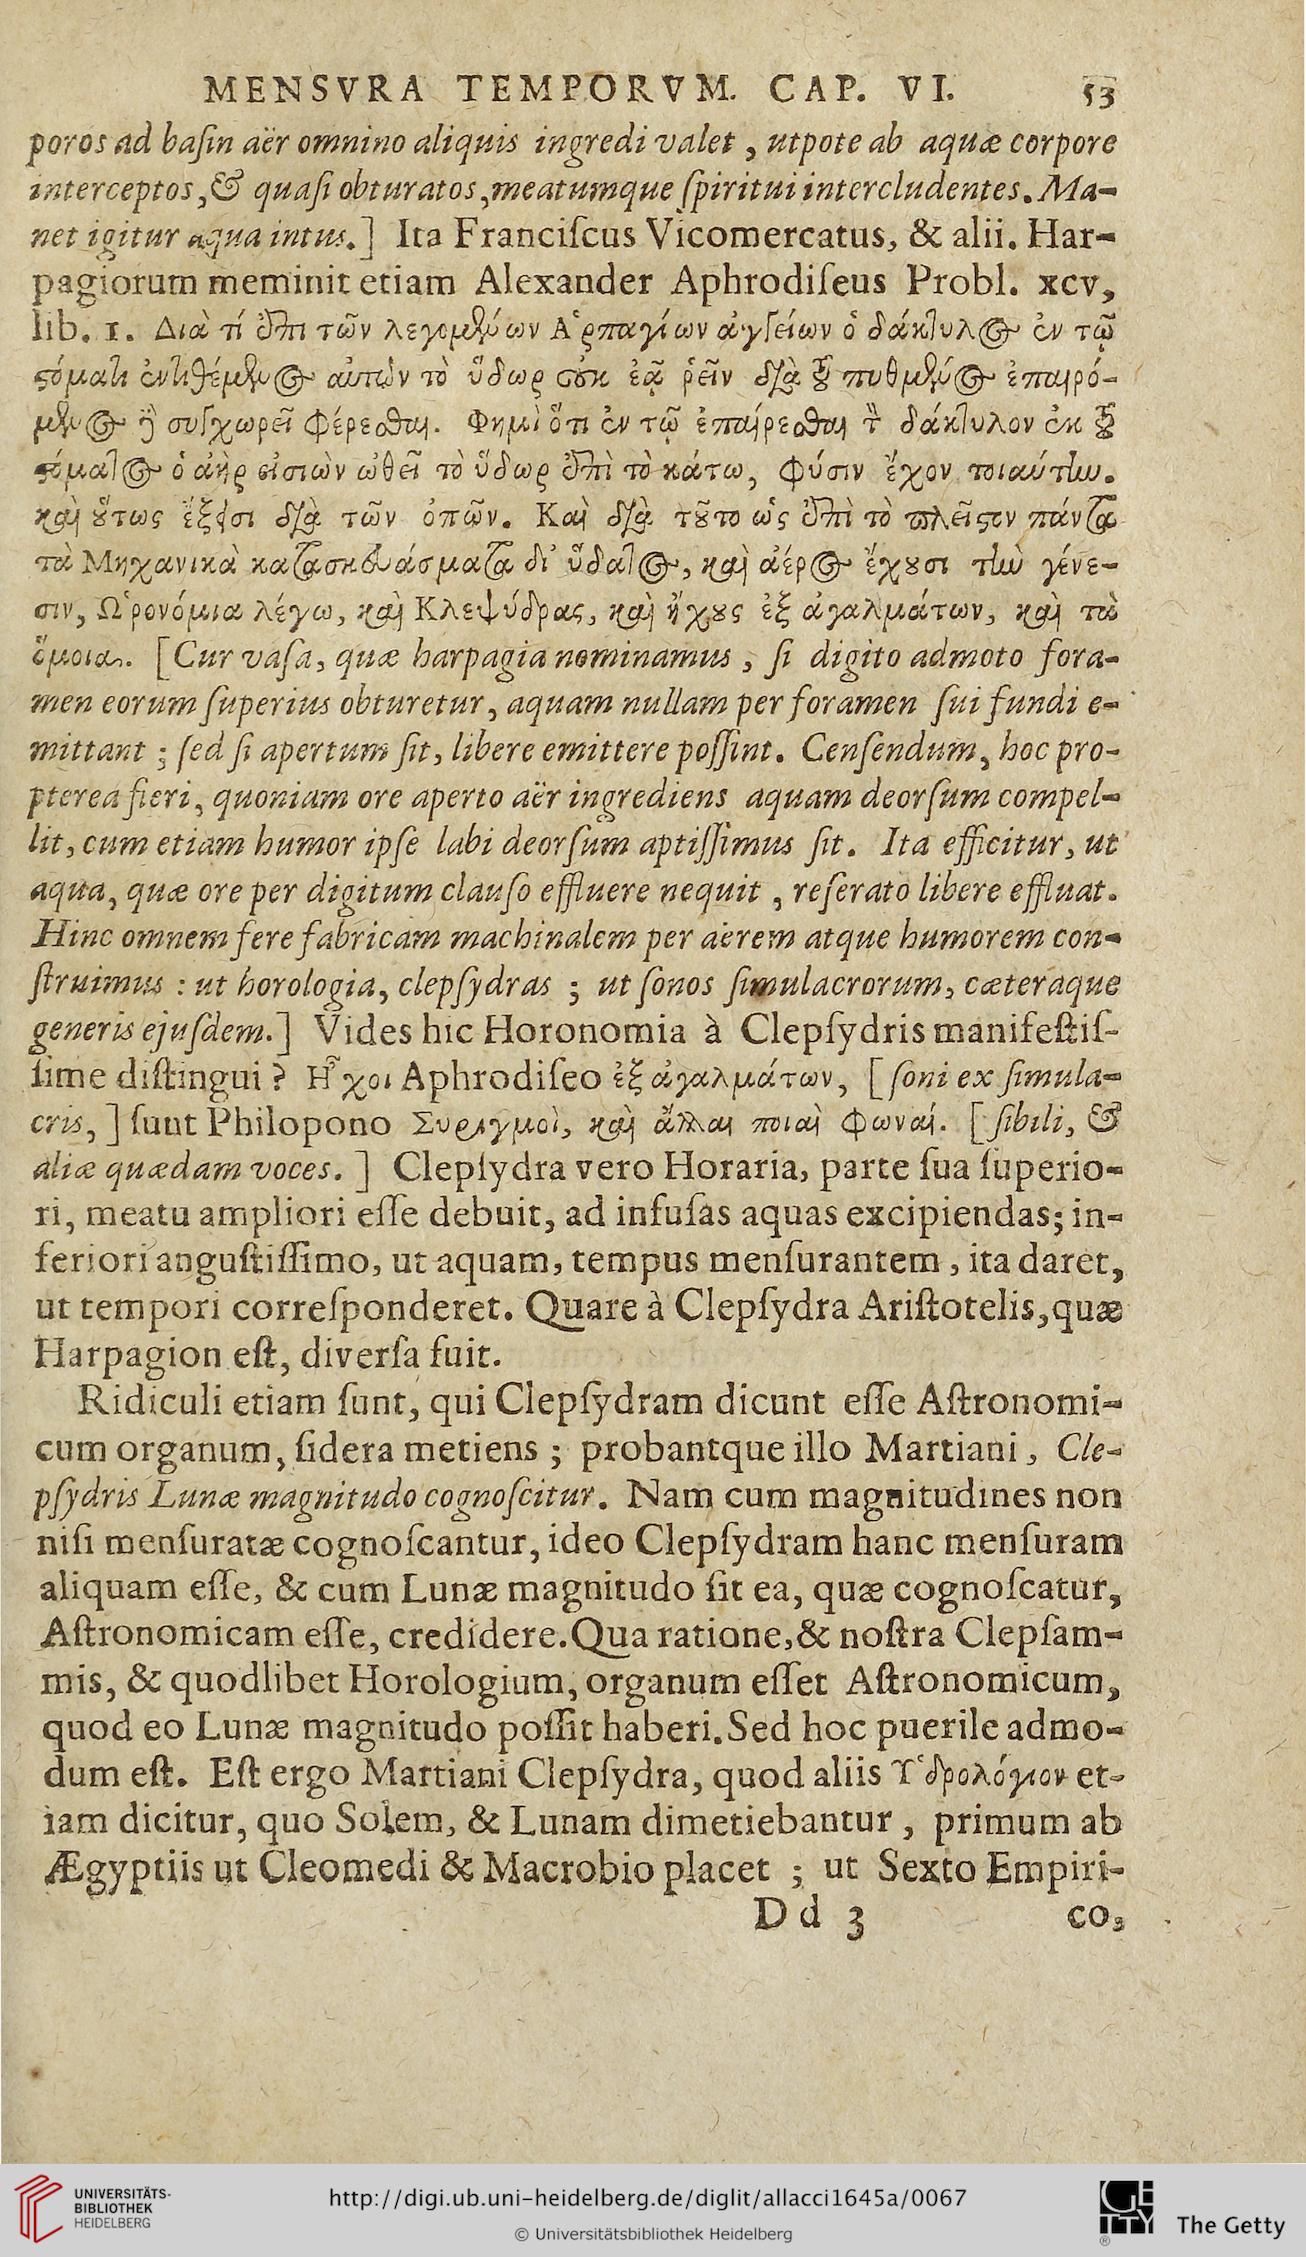 MENSVRA TEMPORVM. CAP. VI. 53
poros ad baſin aër omnino aliquis ingredi valet , utpote ab aquæ corpore
interceptos , & quaſi obturatos , meatumque ſpiritui intercludentes. Ma-
net igitur aqua intus.] Ita Franciſcus Vicomercatus, & alii. Har-
pagiorum meminit etiam Alexander Aphrodiſeus Probl. xcv,
lib. 1. Διὰ τί ἐπὶ τῶν λεγομένων Ἁρπαγίων ἀγγείων ὁ δάκτυλος ἐν τῷ
στόματι ἐντιθέμενος αὐτῶν τὸ ὕδωρ οὐκ ἐᾷ ῥεῖν διὰ τοῦ πυθμένος ἐπαιρό-
μενος ἢ συγχωρεῖ φέρεσθαι. Φημὶ ὅτι ἐν τῷ ἐπαίρεσθαι τὸν δάκτυλον ἐκ τοῦ
στόματος ὁ ἀὴρ εἰσιὼν ὠθεῖ τὸ ὕδωρ ἐπὶ τὸ κάτω, φύσιν ἔχον τοιαύτην.
καὶ οὕτως ἔξεισι διὰ τῶν ὀπῶν. Καὶ διὰ τοῦτο ὡς ἐπὶ τὸ πλεῖστον πάντα
τὰ Μηχανικὰ κατασκευάσματα δι' ὕδατος, καὶ ἀέρος ἔχουσι τὴν γένε-
σιν, Ὡρονόμια λέγω, καὶ Κλεψύδρας, καὶ ἤχους ἐξ ἀγαλμάτων, καὶ τὰ
ὅμοια. [Cur vaſa, quæ harpagia nominamus , ſi digito admoto fora-
men eorum ſuperius obturetur, aquam nullam per foramen ſui fundi e-
mittant ; ſed ſi apertum ſit, libere emittere poſſint. Cenſendum, hoc pro-
pterea fieri, quoniam ore aperto aër ingrediens aquam deorſum compel-
lit, cum etiam humor ipſe labi deorſum aptiſſimus ſit. Ita efficitur, ut
aqua, quæ ore per digitum clauſo effluere nequit , reſerato libere effluat.
Hinc omnem fere fabricam machinalem per aërem atque humorem con-
ſtruimus : ut horologia, clepſydras ; ut ſonos ſimulacrorum, cæteraque
generis ejuſdem.] Vides hic Horonomia à Clepſydris manifeſtiſ-
ſime diſtingui ? Ἦχοι Aphrodiſeo ἐξ ἀγαλμάτων, [ ſoni ex ſimula-
cris, ] ſunt Philopono Συριγμοὶ, καὶ ἄλλαι ποιαὶ φωναί. [ ſibili, &
aliæ quædam voces. ] Clepſydra vero Horaria, parte ſua ſuperio-
ri, meatu ampliori eſſe debuit, ad infuſas aquas excipiendas; in-
feriori anguſtiſſimo, ut aquam, tempus menſurantem , ita daret,
ut tempori correſponderet. Quare à Clepſydra Ariſtotelis, quæ
Harpagion eſt, diverſa fuit.
Ridiculi etiam ſunt, qui Clepſydram dicunt eſſe Aſtronomi-
cum organum, ſidera metiens ; probantque illo Martiani , Cle-
pſydris Lunæ magnitudo cognoſcitur. Nam cum magnitudines non
niſi menſuratæ cognoſcantur, ideo Clepſydram hanc menſuram
aliquam eſſe, & cum Lunæ magnitudo ſit ea, quæ cognoſcatur,
Aſtronomicam eſſe, credidere. Qua ratione, & noſtra Clepſam-
mis, & quodlibet Horologium, organum eſſet Aſtronomicum,
quod eo Lunæ magnitudo poſſit haberi. Sed hoc puerile admo-
dum eſt. Eſt ergo Martiani Clepſydra, quod aliis Ὑδρολόγιον et-
iam dicitur, quo Solem, & Lunam dimetiebantur , primum ab
Ægyptiis ut Cleomedi & Macrobio placet ; ut Sexto Empiri-
D d 3 co,
UNIVERSITÄTS-
BIBLIOTHEK
HEIDELBERG
http://digi.ub.uni-heidelberg.de/diglit/allacci1645a/0067
© Universitätsbibliothek Heidelberg
GETTY
The Getty